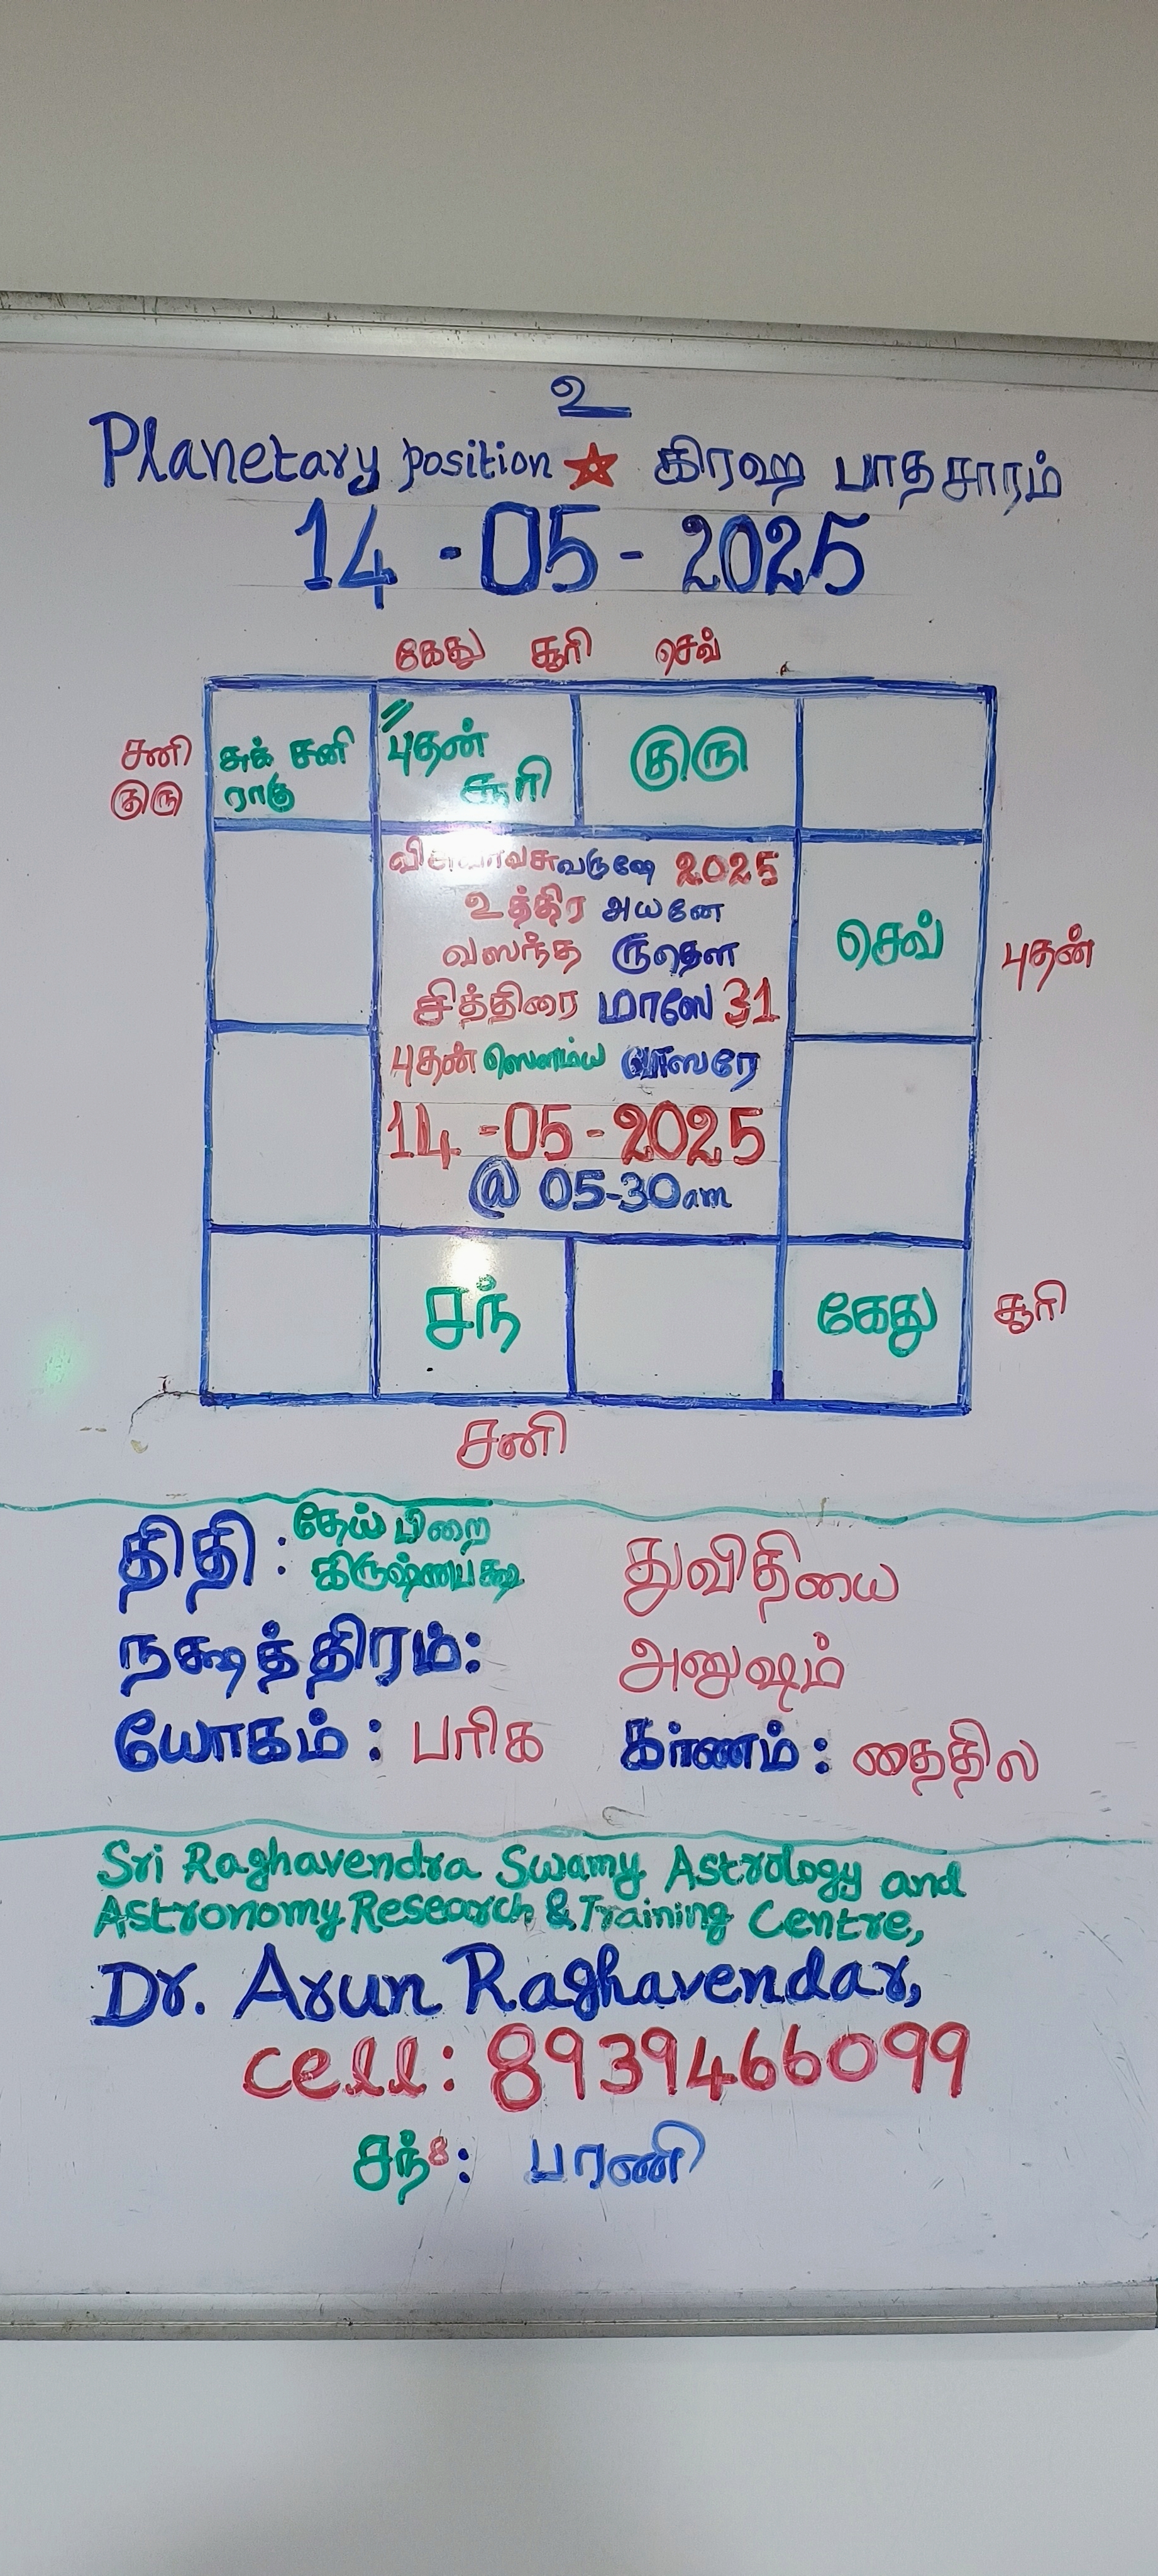 உ
Planetary position ★ கிரஹ பாதசாரம்
14 - 05 - 2025
கேது சூரி செவ்
சனி
குரு
சுக் சனி
ராகு
புதன்
சூரி
குரு
வருஷே 2025
உத்திர அயனே
வஸந்த ருதௌ
சித்திரை மாஸே 31
புதன் ஸௌம்ய வாஸரே
14 - 05 - 2025
@ 05-30am
செவ்
புதன்
சந்
கேது
சூரி
சனி
திதி : தேய் பிறை
கிருஷ்ணபக்ஷ
துவிதியை
நக்ஷத்திரம்: அனுஷம்
யோகம் : பரிக கர்ணம் : தைதில
Sri Raghavendra Swamy Astrology and
Astronomy Research & Training Centre,
Dr. Arun Raghavendar,
cell: 8939466099
சந்8: பரணி